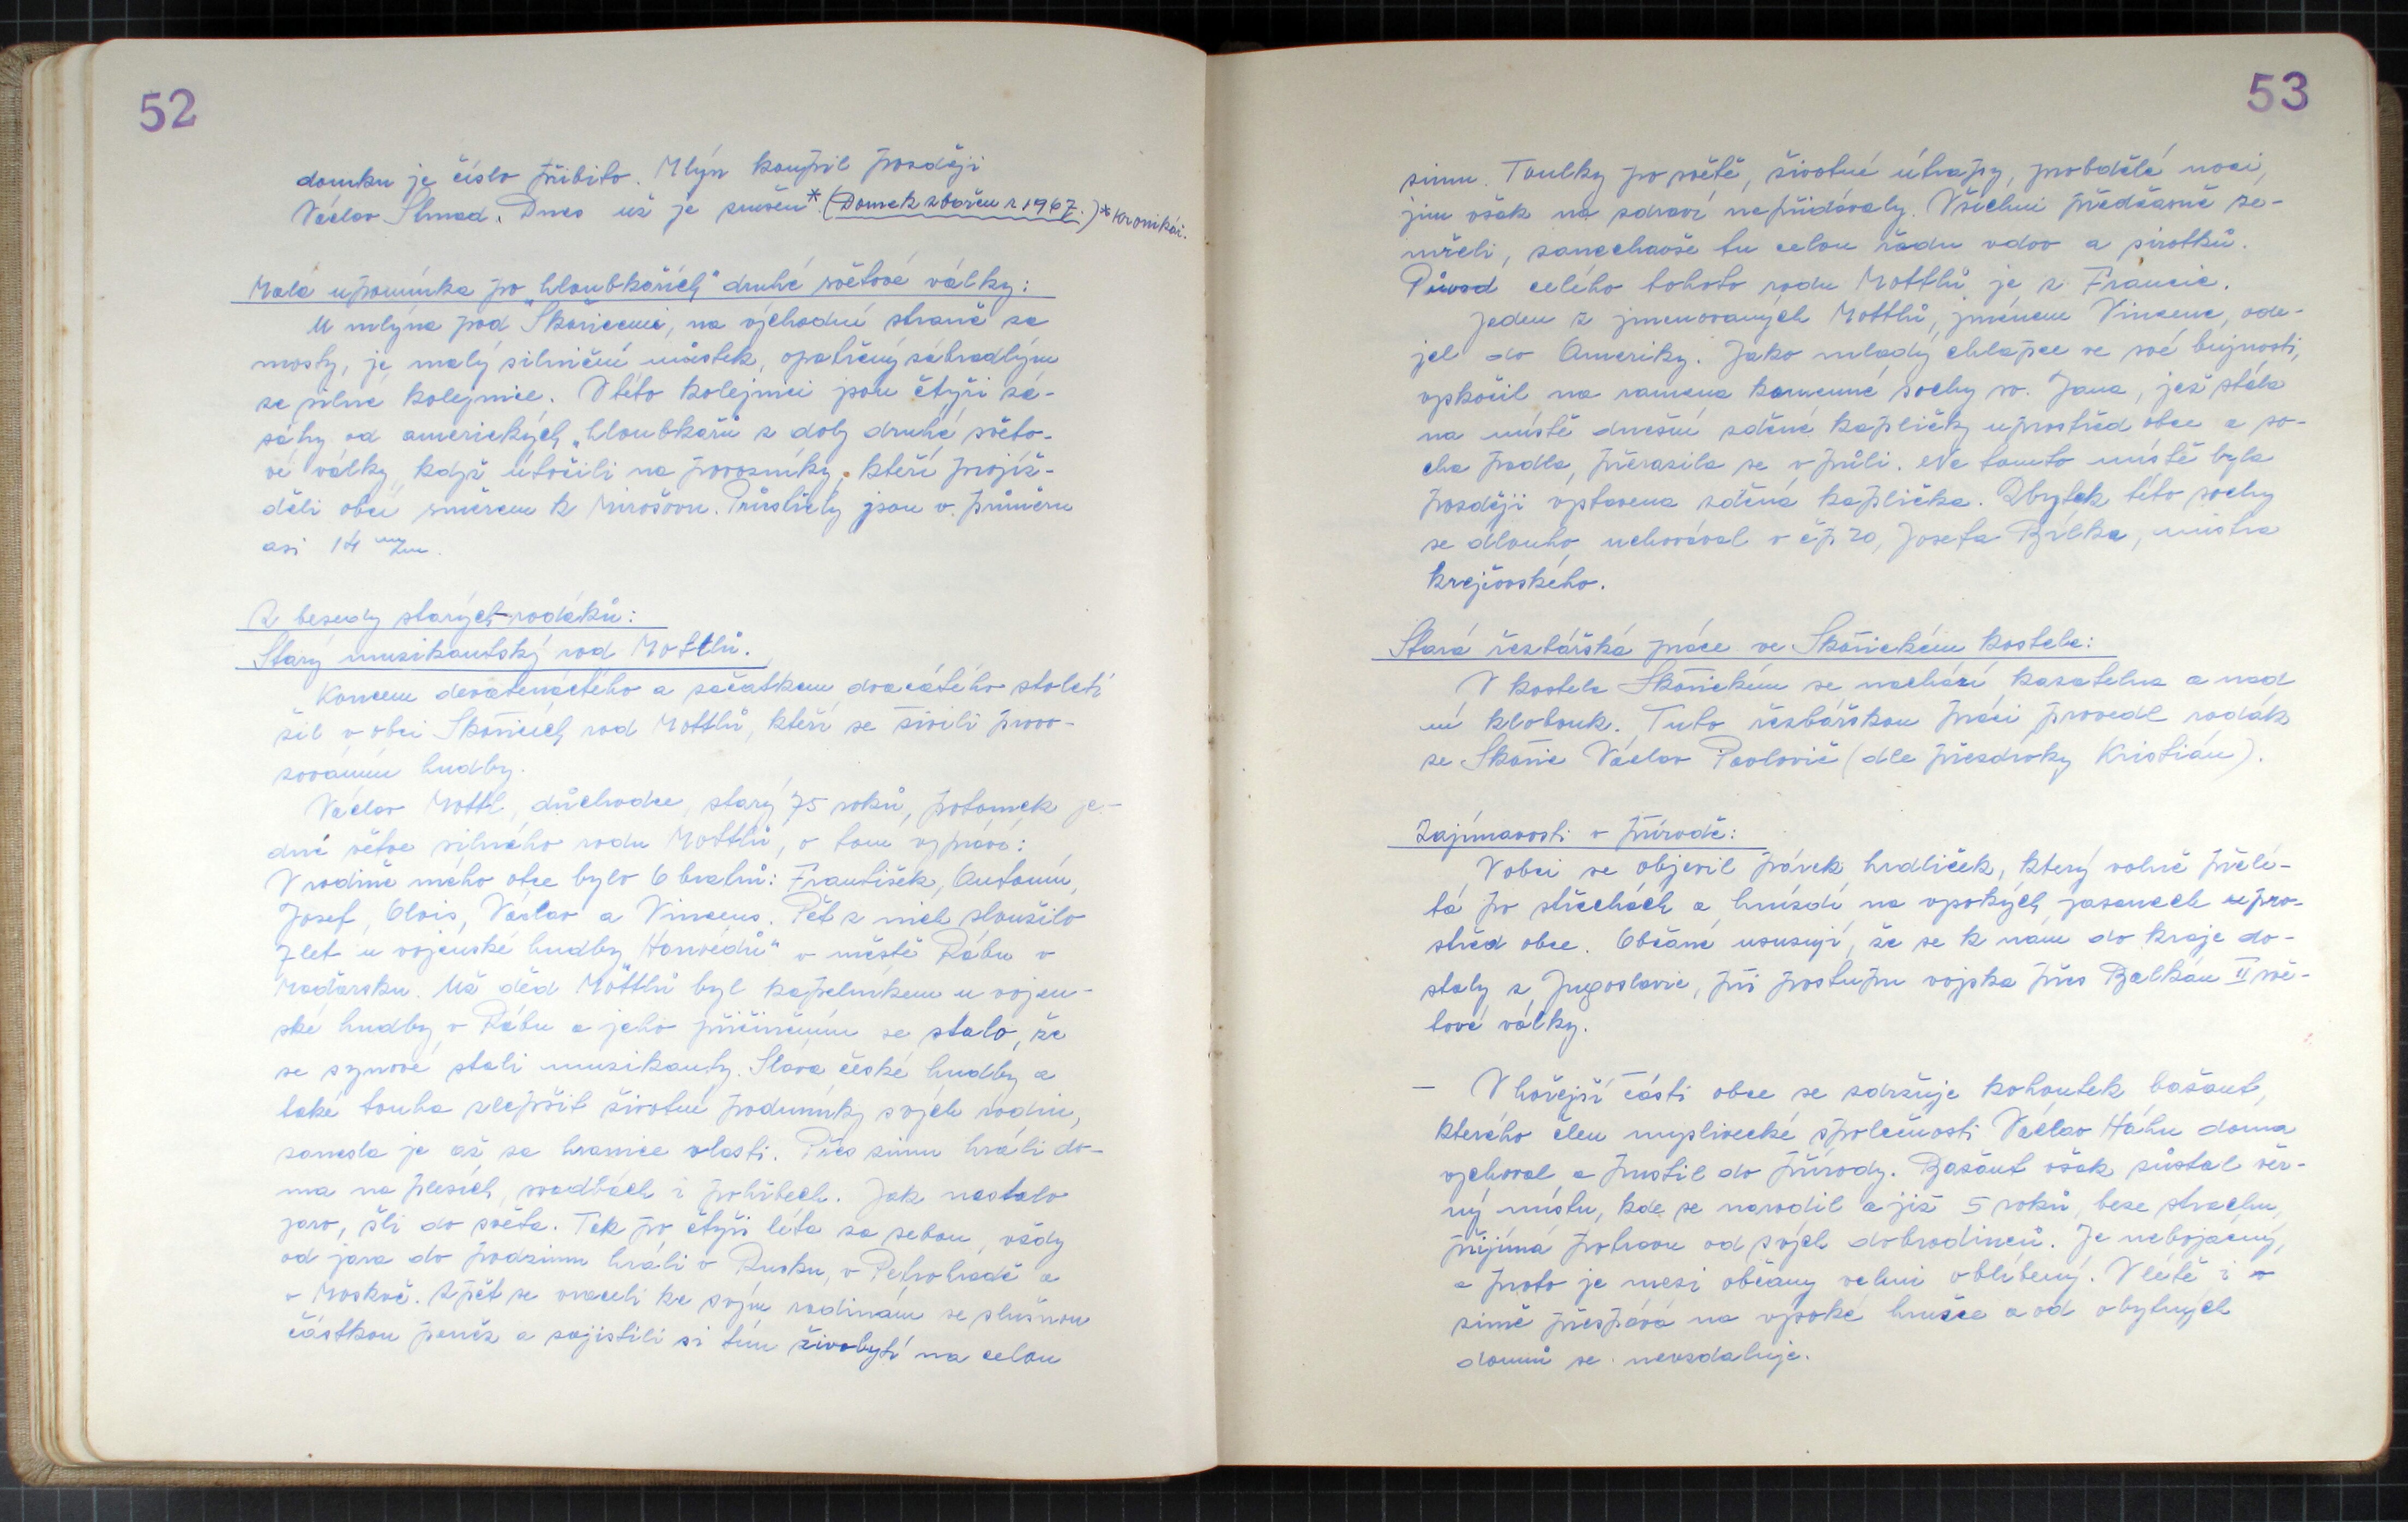 52
domku je číslo přibito. Mlýn koupil později
Václav Strnad. Dnes už je zrušen* (Domek zbořen r 1967.)* Kronikář.
Malá upomínka po „hloubkařích" druhé světové války:
U mlýna pod Skořicemi, na východní straně za
mosty, je malý silniční můstek, opatřený zábradlým
ze silné kolejnice. V této kolejnici jsou čtyři zá-
sahy od amerických „hloubkařů z doby druhé světo-
vé války, když útočili na povozníky, kteří projíž-
děli obcí směrem k Mirošovu. Průstřely jsou v průměru
asi 14 m/m.
Z besedy starých rodáků:
Starý muzikantský rod Mottlů.
Koncem devatenáctého a začátkem dvacátého století
žil v obci Skořicích rod Mottlů, kteří se živili provo-
zováním hudby.
Václav Mottl, důchodce, starý 75 roků, potomek je-
dné větve silného rodu Mottlů, o tom vypráví:
V rodině mého otce bylo 6 bratrů: František, Antonín,
Josef, Alois, Václav a Vincenc. Pět z nich sloužilo
7 let u vojenské hudby „Honvédů" v městě Rábu v
Maďarsku. Už děd Mottlů byl kapelníkem u vojen-
ské hudby v Rábu a jeho přičiněním se stalo, že
se synové stali muzikanty. Sláva české hudby a
také touha zlepšit životní podmínky svých rodin,
zanesla je až za hranice vlasti. Přes zimu hráli do-
ma na plesích, svatbách i pohřbech. Jak nastalo
jaro, šli do světa. Tak po čtyři léta za sebou, vždy
od jara do podzimu hráli v Rusku, v Petrohradě a
v Moskvě. Zpět se vraceli ke svým rodinám se slušnou
částkou peněz a zajistili si tím živobytí na celou
53
zimu. Toulky po světě, životní útrapy, probdělé noci,
jim však na zdraví nepřidávaly. Všichni předčasně ze-
mřeli, zanechavše tu celou řadu vdov a sirotků.
Původ celého tohoto rodu Mottlů je z Francie.
Jeden z jmenovaných Mottlů, jménem Vincenc, ode-
jel do Ameriky. Jako mladý chlapec ve své bujnosti,
vyskočil na ramena kamenné sochy sv. Jana, jež stála
na místě dnešní zděné kapličky uprostřed obce a so-
cha padla, přerazila se v půli. Na tomto místě byla
později vystavena zděná kaplička. Zbytek této sochy
se dlouho uchovával v čp 20, Josefa Bílka, mistra
krejčovského.
Stará řezbářská práce ve Skořickém kostele:
V kostele Skořickém se nachází kazatelna a nad
ní klobouk. Tuto řezbářskou práci provedl rodák
ze Skořic Václav Pavlovič (dle přezdívky Kristián).
Zajímavosti v přírodě:
V obci se objevil párek hrdliček, který volně přelé-
tá po střechách a hnízdí na vysokých jasanech upro-
střed obce. Občané usuzují, že se k nám do kraje do-
staly z Jugoslavie, při postupu vojska přes Balkán II svě-
tové války.
— V hořejší části obce se zdržuje kohoutek bažant,
kterého člen myslivecké společnosti Václav Háhn doma
vychoval a pustil do přírody. Bažant však zůstal věr-
ný místu, kde se narodil a již 5 roků, beze strachu,
přijímá potravu od svých dobrodinců. Je nebojácný,
a proto je mezi občany velmi oblíbený. V létě i v
zimě přespává na vysoké hrušce a od obytných
domů se nevzdaluje.